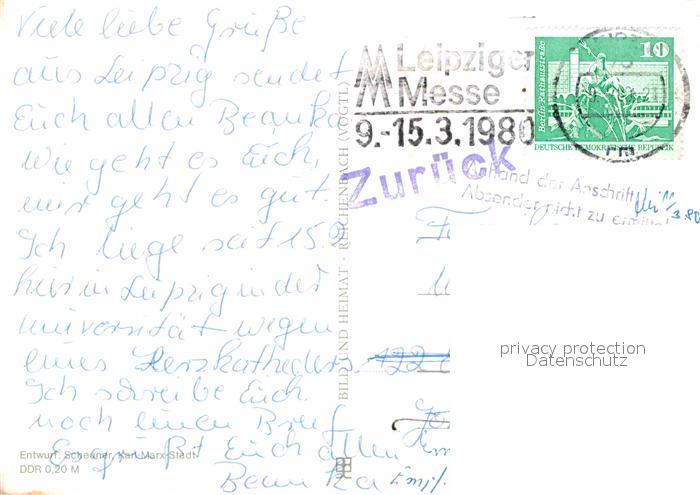 Viele liebe Grüße
aus Leipzig sendet
Euch allen Beanka
Wie geht es Euch
mir geht es gut.
Ich liege seit 15.2
hier in Leipzig in der
Universität wegen
eines Herzkatheders.
Ich schreibe Euch
noch einen Brief
Es grüßt Euch allen
Beanka
Entwurf: Scheuner, Karl-Marx-Stadt
DDR 0,20 M
BILD UND HEIMAT · REICHENBACH (VOGTL)
MM Leipziger
Messe
9.-15.3.1980
10
Berlin, Rathausstraße
DEUTSCHE DEMOKRATISCHE REPUBLIK
Zurück
Anhand der Anschrift
Absender nicht zu ermittel
3.80
122
privacy protection
Datenschutz